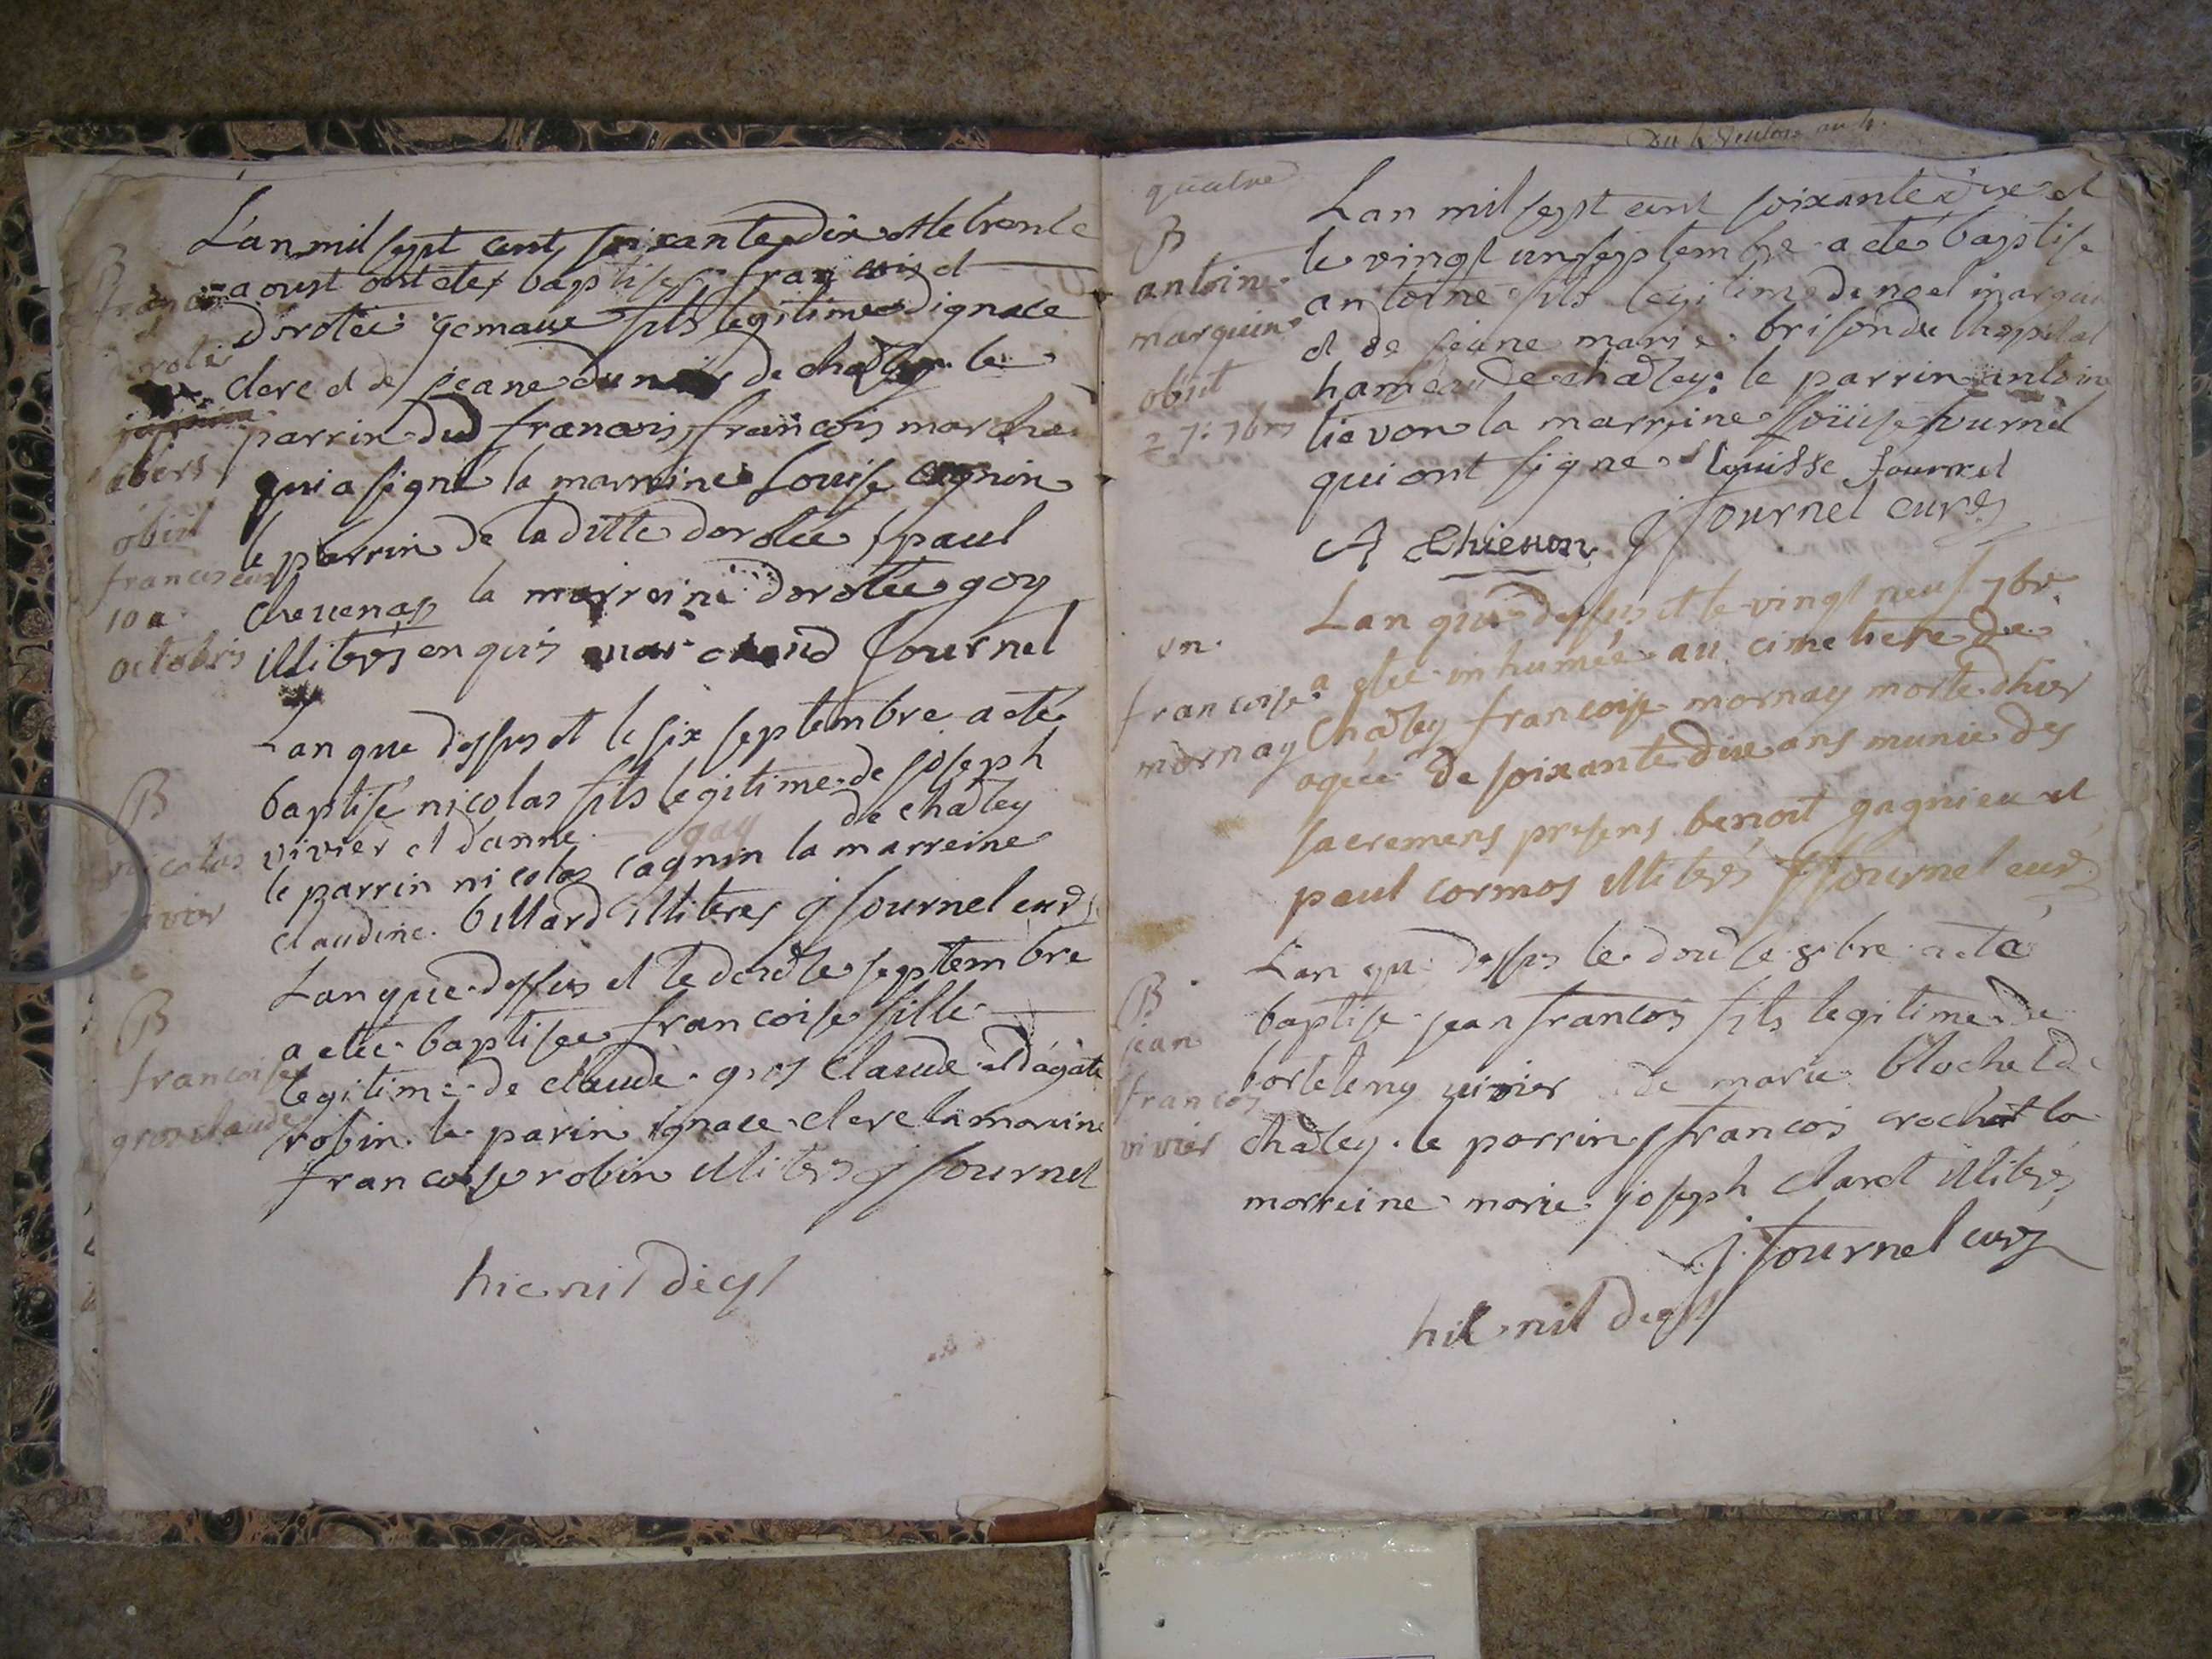 L'an mil sept cent soixante dix et le trente
aoust ont etes baptises francois et
dorotée gemaux fils legitimes dignace
clerc et de jeane de chadley le
parrin dud francois francois marcha
qui a signé la marreine Louise cagnin
le parrin de la ditte dorotée paul
chevenas la marreine dorotée goy
illiterés enquis marchand fournel
B
francois
et
obiit
franciscus
10a
octobris
L'an que dessus et le six septembre a eté
baptisé nicolas fils legitime de joseph
vivier et d'anne gay de chadley
le parrin nicolas cagnin la marreine
claudine billard illiteres j fournel curé
B
nicolas
vivier
L'an que dessus et le douze septembre
a eteé baptisee francoise fille
legitime de claude gros claude et d'agate
robin le parin ignace clerc la marine
francoise robin illiterés j fournel
B
francoise
gros claude
hic nil deest
quatre
L'an mil sept cent soixante dix et
le vingt un septembre a eté baptise
antoine fils legitime de noel marquin
et de jeane marie brison du lhopital
hameau de chadley le parrin antoine
tievon la marreine Loüise fournel
qui ont signe Louisse fournel
A Thievon J fournel curé
B
antoine
marquin
obiit
27: 7bris
L'an que dessus et le vingt neuf 7bre
a eteé inhumée au cimetiere de
Chadley francoise mornay morte d'hier
agée de soixante dix ans munie des
sacremens presens benoit gagnieu et
paul cormos illiterés J fournel curé
un.
francoise
mornay
L'an que dessus le douse 8bre a eté
baptise jean francois fils legitime de
bortelemy vivier de marie blochet de
chadley le parrin francois crochat la
marreine marie joseph claret illiterés
J fournel curé
B
jean
francois
vivier
hic nil deest